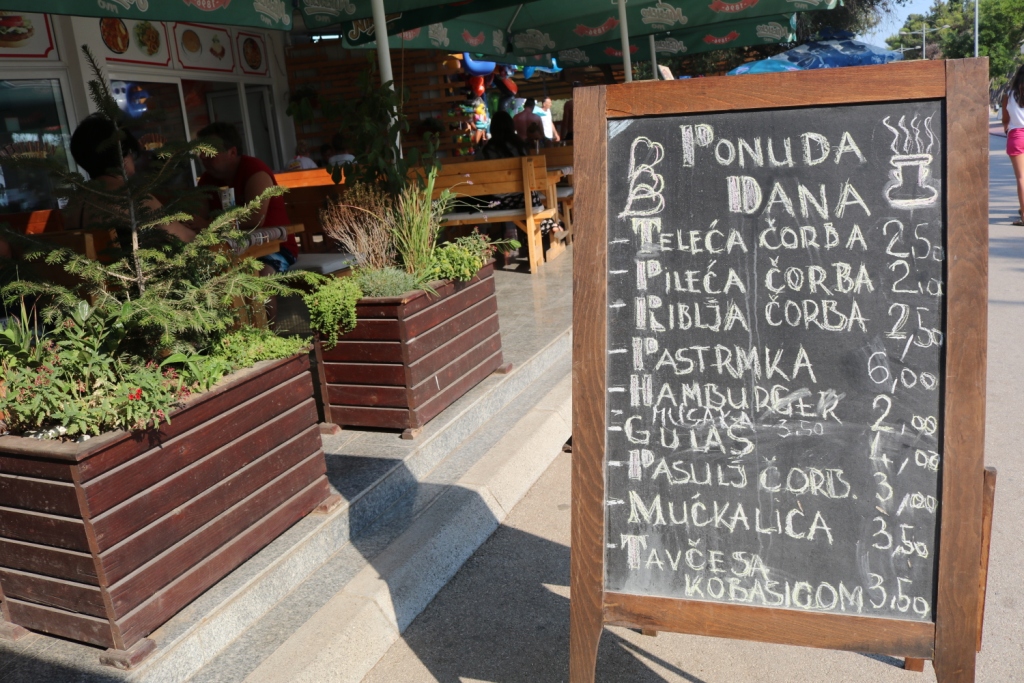 PONUDA
DANA
- TELEĆA ČORBA 2,50
- PILEĆA ČORBA 2,0
- RIBLJA ČORBA 2,50
- PASTRMKA 6,00
- HAMBURGER 2,00
MUSAKA - 3,50
- GULAŠ 4,00
- PASULJ ČORB. 3,00
- MUĆKALICA 3,50
- TAVČE SA
KOBASICOM 3,50